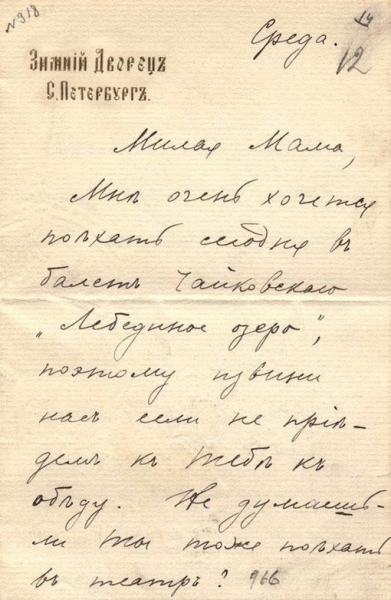 №318
Среда.
14
12
Зимній Дворецъ
С. Петербургъ.
Милая Мама,
Мнѣ очень хочется
поѣхать сегодня въ
балетъ Чайковскаго
„Лебединое озеро“,
поэтому извини
насъ если не пріѣ-
демъ къ тебѣ къ
обѣду. Не думаешь-
ли ты тоже поѣхать
въ театръ? 966